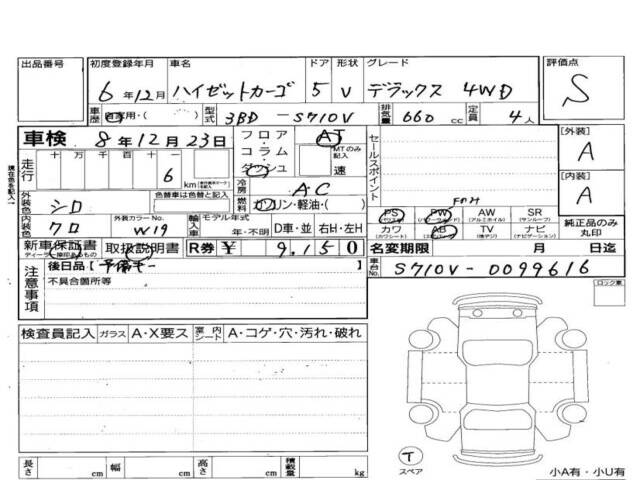 出品番号 初度登録年月 車名 ドア 形状 グレード 評価点
6年12月 ハイゼットカーゴ 5 V デラックス 4WD S
車歴 自家用・( ) 型式 3BD-S710V 排気量 660 cc 定員 4人
車検 8年12月23日 フロア・コラム・ダッシュ AT MTのみ記入 速 セールスポイント [外装] A
走行 十万 万 千 百 十 一 6 km
冷房 AC [内装] A
外装色 シロ 色替車は色替と記入 燃料 ガソリン・軽油・( )
PS AW SR
(パワステ) (パワーウィンド) (アルミホイル) (サンルーフ)
内装色 クロ 外装カラーNo. W19 輸入車 モデル年式 年・不明 D車・並 右H・左H カワ AB TV ナビ 純正品のみ丸印
(カワシート) (エアバック) (ナビゲーション)
新車保証書 取扱説明書 R券 ¥ 9,150 名変期限 月 日迄
注意事項 後日品 [予備キー] 車台No. S710V-0099616
不具合箇所等 ロック車
検査員記入 ガラス A・X要ス 室内シート A・コゲ・穴・汚れ・破れ
T
スペア
長さ cm 幅 cm 高さ cm 積載量 kg 小A有・小U有
現在色を記入